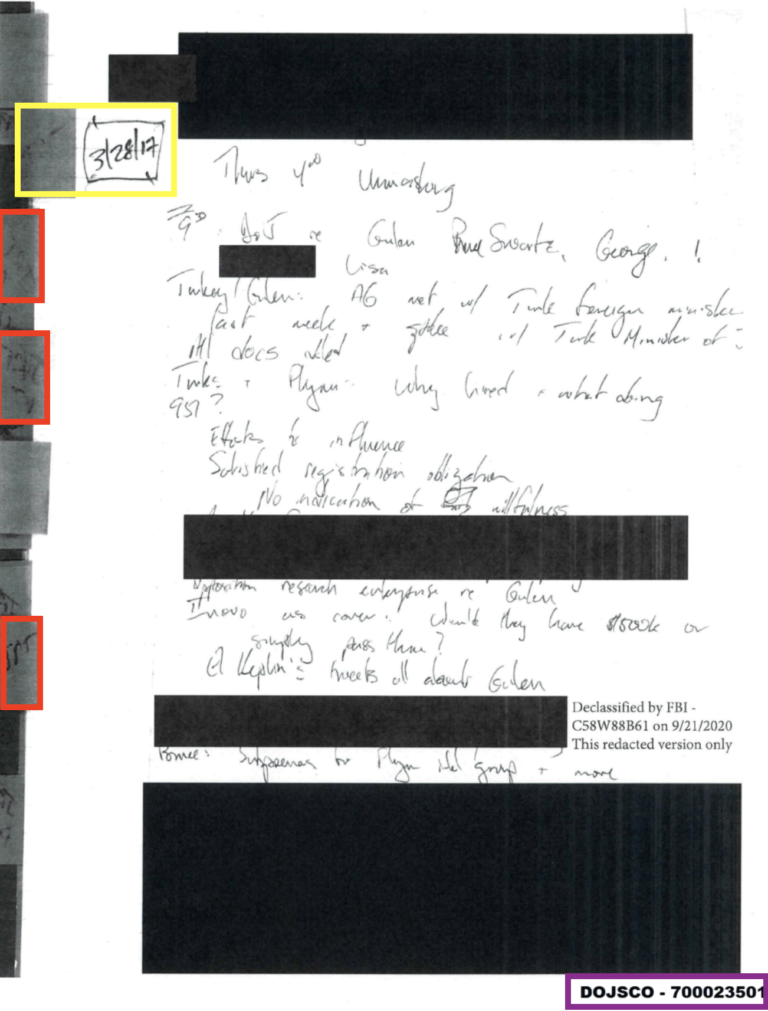 3/28/17
Thurs 4⁰⁰ Unmasking
9³⁰. DoJ re Gulen Bruce Swartz, George, !
Lisa
Turkey/Gulen: AG met w/ Turk foreign minister
last week + w/ Turk Minister of
All docs
Turks + Flynn - why hired + what doing
951?
Efforts to influence
Satisfied registration obligation
No indication of willfulness
Opposition research enterprise re Gulen
Inovo as cover. Would they have $500k or
simply pass thru?
tweets all about Gulen
Declassified by FBI -
C58W88B61 on 9/21/2020
This redacted version only
Bruce: Subpoenas for Flynn Intel group + more
DOJSCO - 700023501